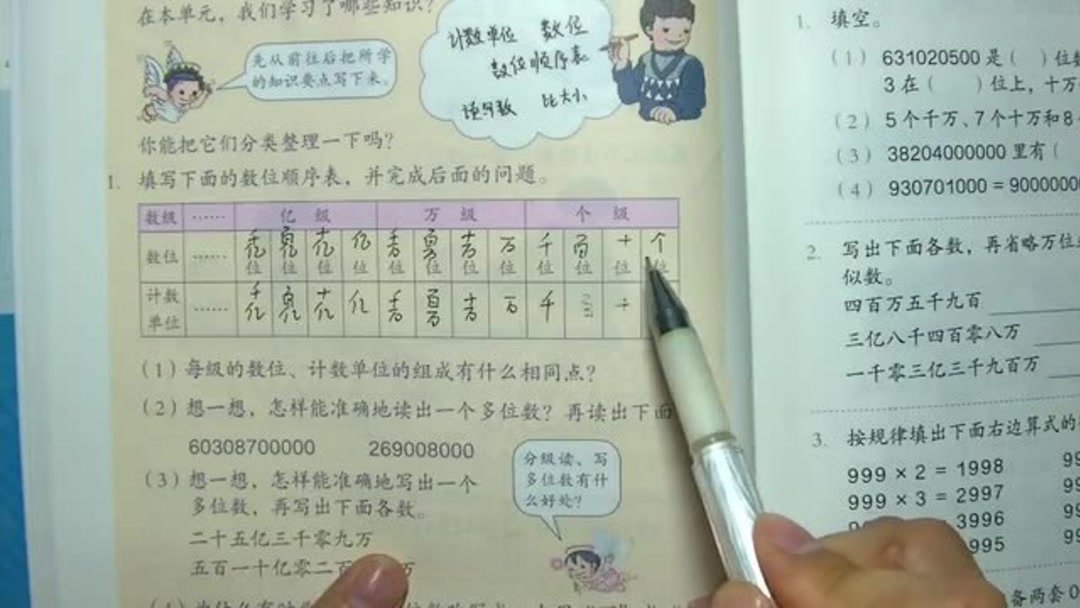 在本单元，我们学习了哪些知识？
先从前往后把所学
的知识要点写下来。
计数单位 数位
数位顺序表
读多位数 比大小
你能把它们分类整理一下吗？
1. 填写下面的数位顺序表，并完成后面的问题。
数级 …… 亿 级 万 级 个 级
数位 …… 千亿位 百亿位 十亿位 亿位 千万位 百万位 十万位 万位 千位 百位 十位 个位
计数单位 …… 千亿 百亿 十亿 亿 千万 百万 十万 万 千 百 十
（1）每级的数位、计数单位的组成有什么相同点？
（2）想一想，怎样能准确地读出一个多位数？再读出下面
60308700000 269008000
（3）想一想，怎样能准确地写出一个
多位数，再写出下面各数。
二十五亿三千零九万
五百一十亿零二百
分级读、写
多位数有什
么好处？
1. 填空。
（1）631020500 是（ ）位数
3 在（ ）位上，十万
（2）5 个千万、7 个十万和 8
（3）38204000000 里有（
（4）930701000 = 9000000
2. 写出下面各数，再省略万位
似数。
四百万五千九百
三亿八千四百零八万
一千零三亿三千九百万
3. 按规律填出下面右边算式的
999 × 2 = 1998 99
999 × 3 = 2997 99
3996
995
备两套 0